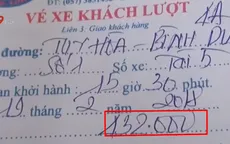 VÉ XE KHÁCH LƯỢT
Liên 3. Giao khách hàng
4A
đường: TUY HÒA - BÌNH D
Số xe: Tài 5
an khởi hành: 15 giờ 30 phút.
19 tháng 2 năm
132.000